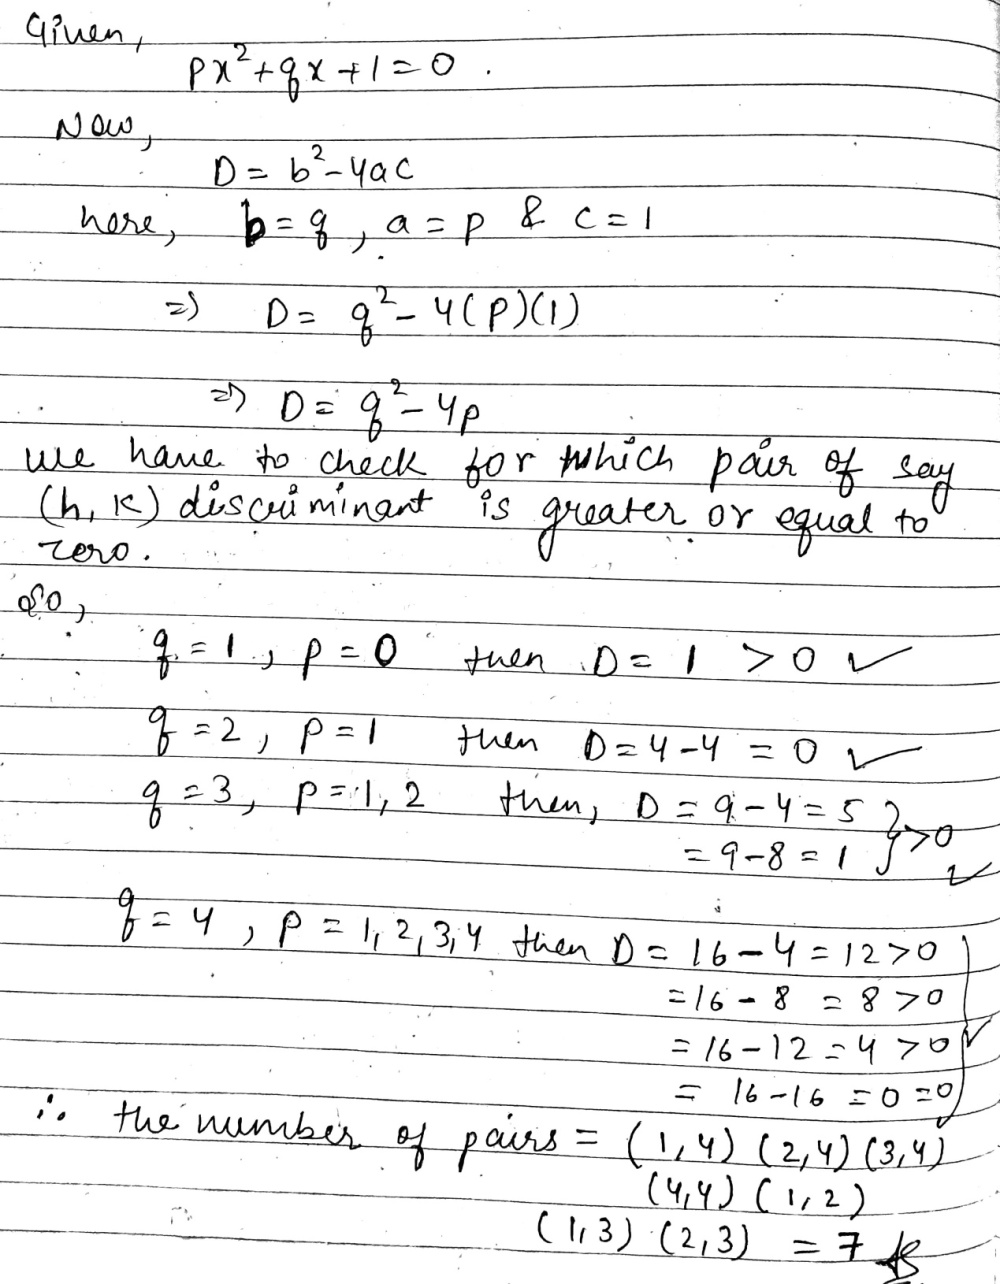 Given,
px²+qx+1=0.
Now,
D= b²-4ac
here, b=q, a=p & c=1
=> D= q²-4(P)(1)
=> D= q²-4p
we have to check for which pair of say
(h, k) discriminant is greater or equal to
zero.
So,
q=1, p=0 then D= 1 >0 ✓
q=2, p=1 then D=4-4 =0 ✓
q=3, p=1,2 then, D = 9-4=5
=9-8=1 } >0 ✓
q=4, p=1,2,3,4 then D= 16-4=12>0
=16-8 =8>0
=16-12=4>0 ✓
= 16-16=0=0
∴ the number of pairs = (1,4) (2,4) (3,4)
(4,4) (1,2)
(1,3) (2,3) =7